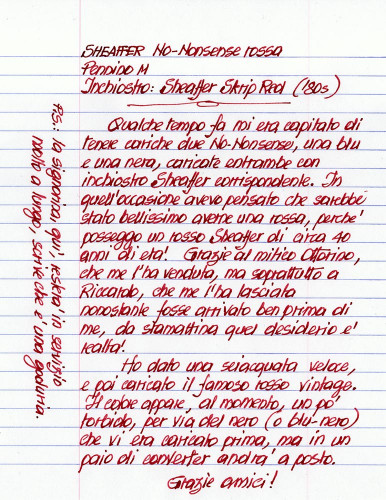 SHEAFFER No-Nonsense rossa
Pennino M
Inchiostro: Sheaffer Skrip Red ('80s)
Qualche tempo fa mi era capitato di
tenere cariche due No-Nonsense, una blu
e una nera, caricate entrambe con
inchiostro Sheaffer corrispondente. In
quell'occasione avevo pensato che sarebbe
stato bellissimo averne una rossa, perche'
posseggo un rosso Sheaffer di circa 40
anni di eta'! Grazie al mitico Ottorino,
che me l'ha venduta, ma soprattutto a
Riccardo, che me l'ha lasciata
nonostante fosse arrivato ben prima di
me, da stamattina quel desiderio e'
realta'!
Ho dato una sciacquata veloce,
e poi caricato il famoso rosso vintage.
Il colore appare, al momento, un po'
torbido, per via del nero (o blu-nero)
che vi era caricato prima, ma in un
paio di converter andra' a posto.
Grazie amici!
P.S.: la signorina, qui, restera' in servizio
molto a lungo, scrive che e' una goduria.